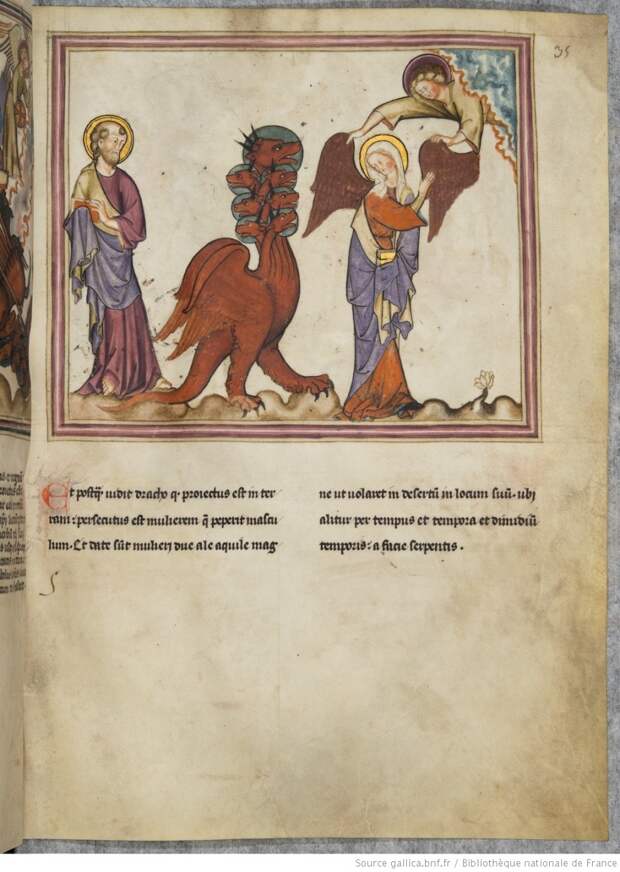 35
Et postq̄ vidit dracho q᷒ proiectus est in ter
ram: persecutus est mulierem q̄ peperit mascu
lum. Et date sūt mulieri due ale aquile mag
ne ut volaret in desertū in locum suū. ubi
alitur per tempus et tempora et dimidiū
temporis: a facie serpentis.
Source gallica.bnf.fr / Bibliothèque nationale de France